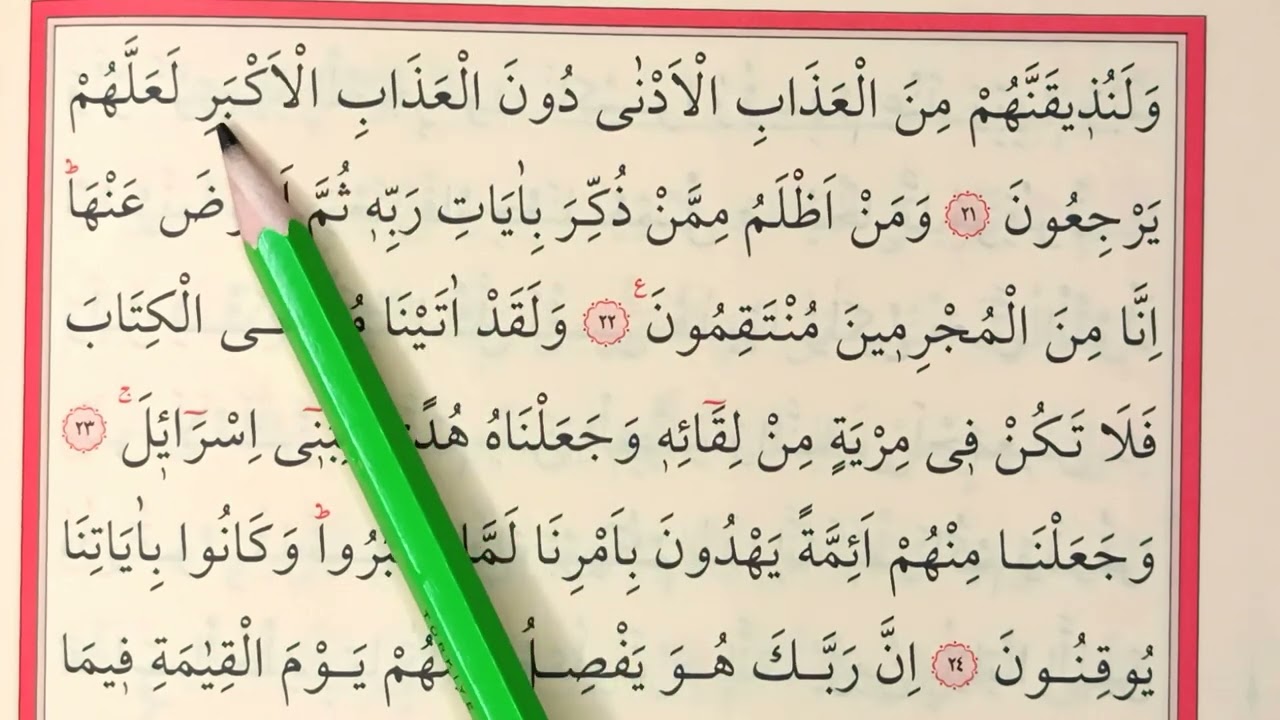 وَلَنُذ۪يقَنَّهُمْ مِنَ الْعَذَابِ الْاَدْنٰى دُونَ الْعَذَابِ الْاَكْبَرِ لَعَلَّهُمْ
يَرْجِعُونَ ٢١ وَمَنْ اَظْلَمُ مِمَّنْ ذُكِّرَ بِاٰيَاتِ رَبِّه۪ ثُمَّ عَنْهَاۜ
اِنَّا مِنَ الْمُجْرِم۪ينَ مُنْتَقِمُونَ۟ ٢٢ وَلَقَدْ اٰتَيْنَا الْكِتَابَ
فَلَا تَكُنْ ف۪ى مِرْيَةٍ مِنْ لِقَٓائِه۪ وَجَعَلْنَاهُ اِسْرَٓائ۪لَۚ ٢٣
وَجَعَلْنَا مِنْهُمْ اَئِمَّةً يَهْدُونَ بِاَمْرِنَا لَمَّا وَكَانُوا بِاٰيَاتِنَا
يُوقِنُونَ ٢٤ اِنَّ رَبَّكَ هُوَ يَفْصِلُ يَوْمَ الْقِيٰمَةِ ف۪يمَا